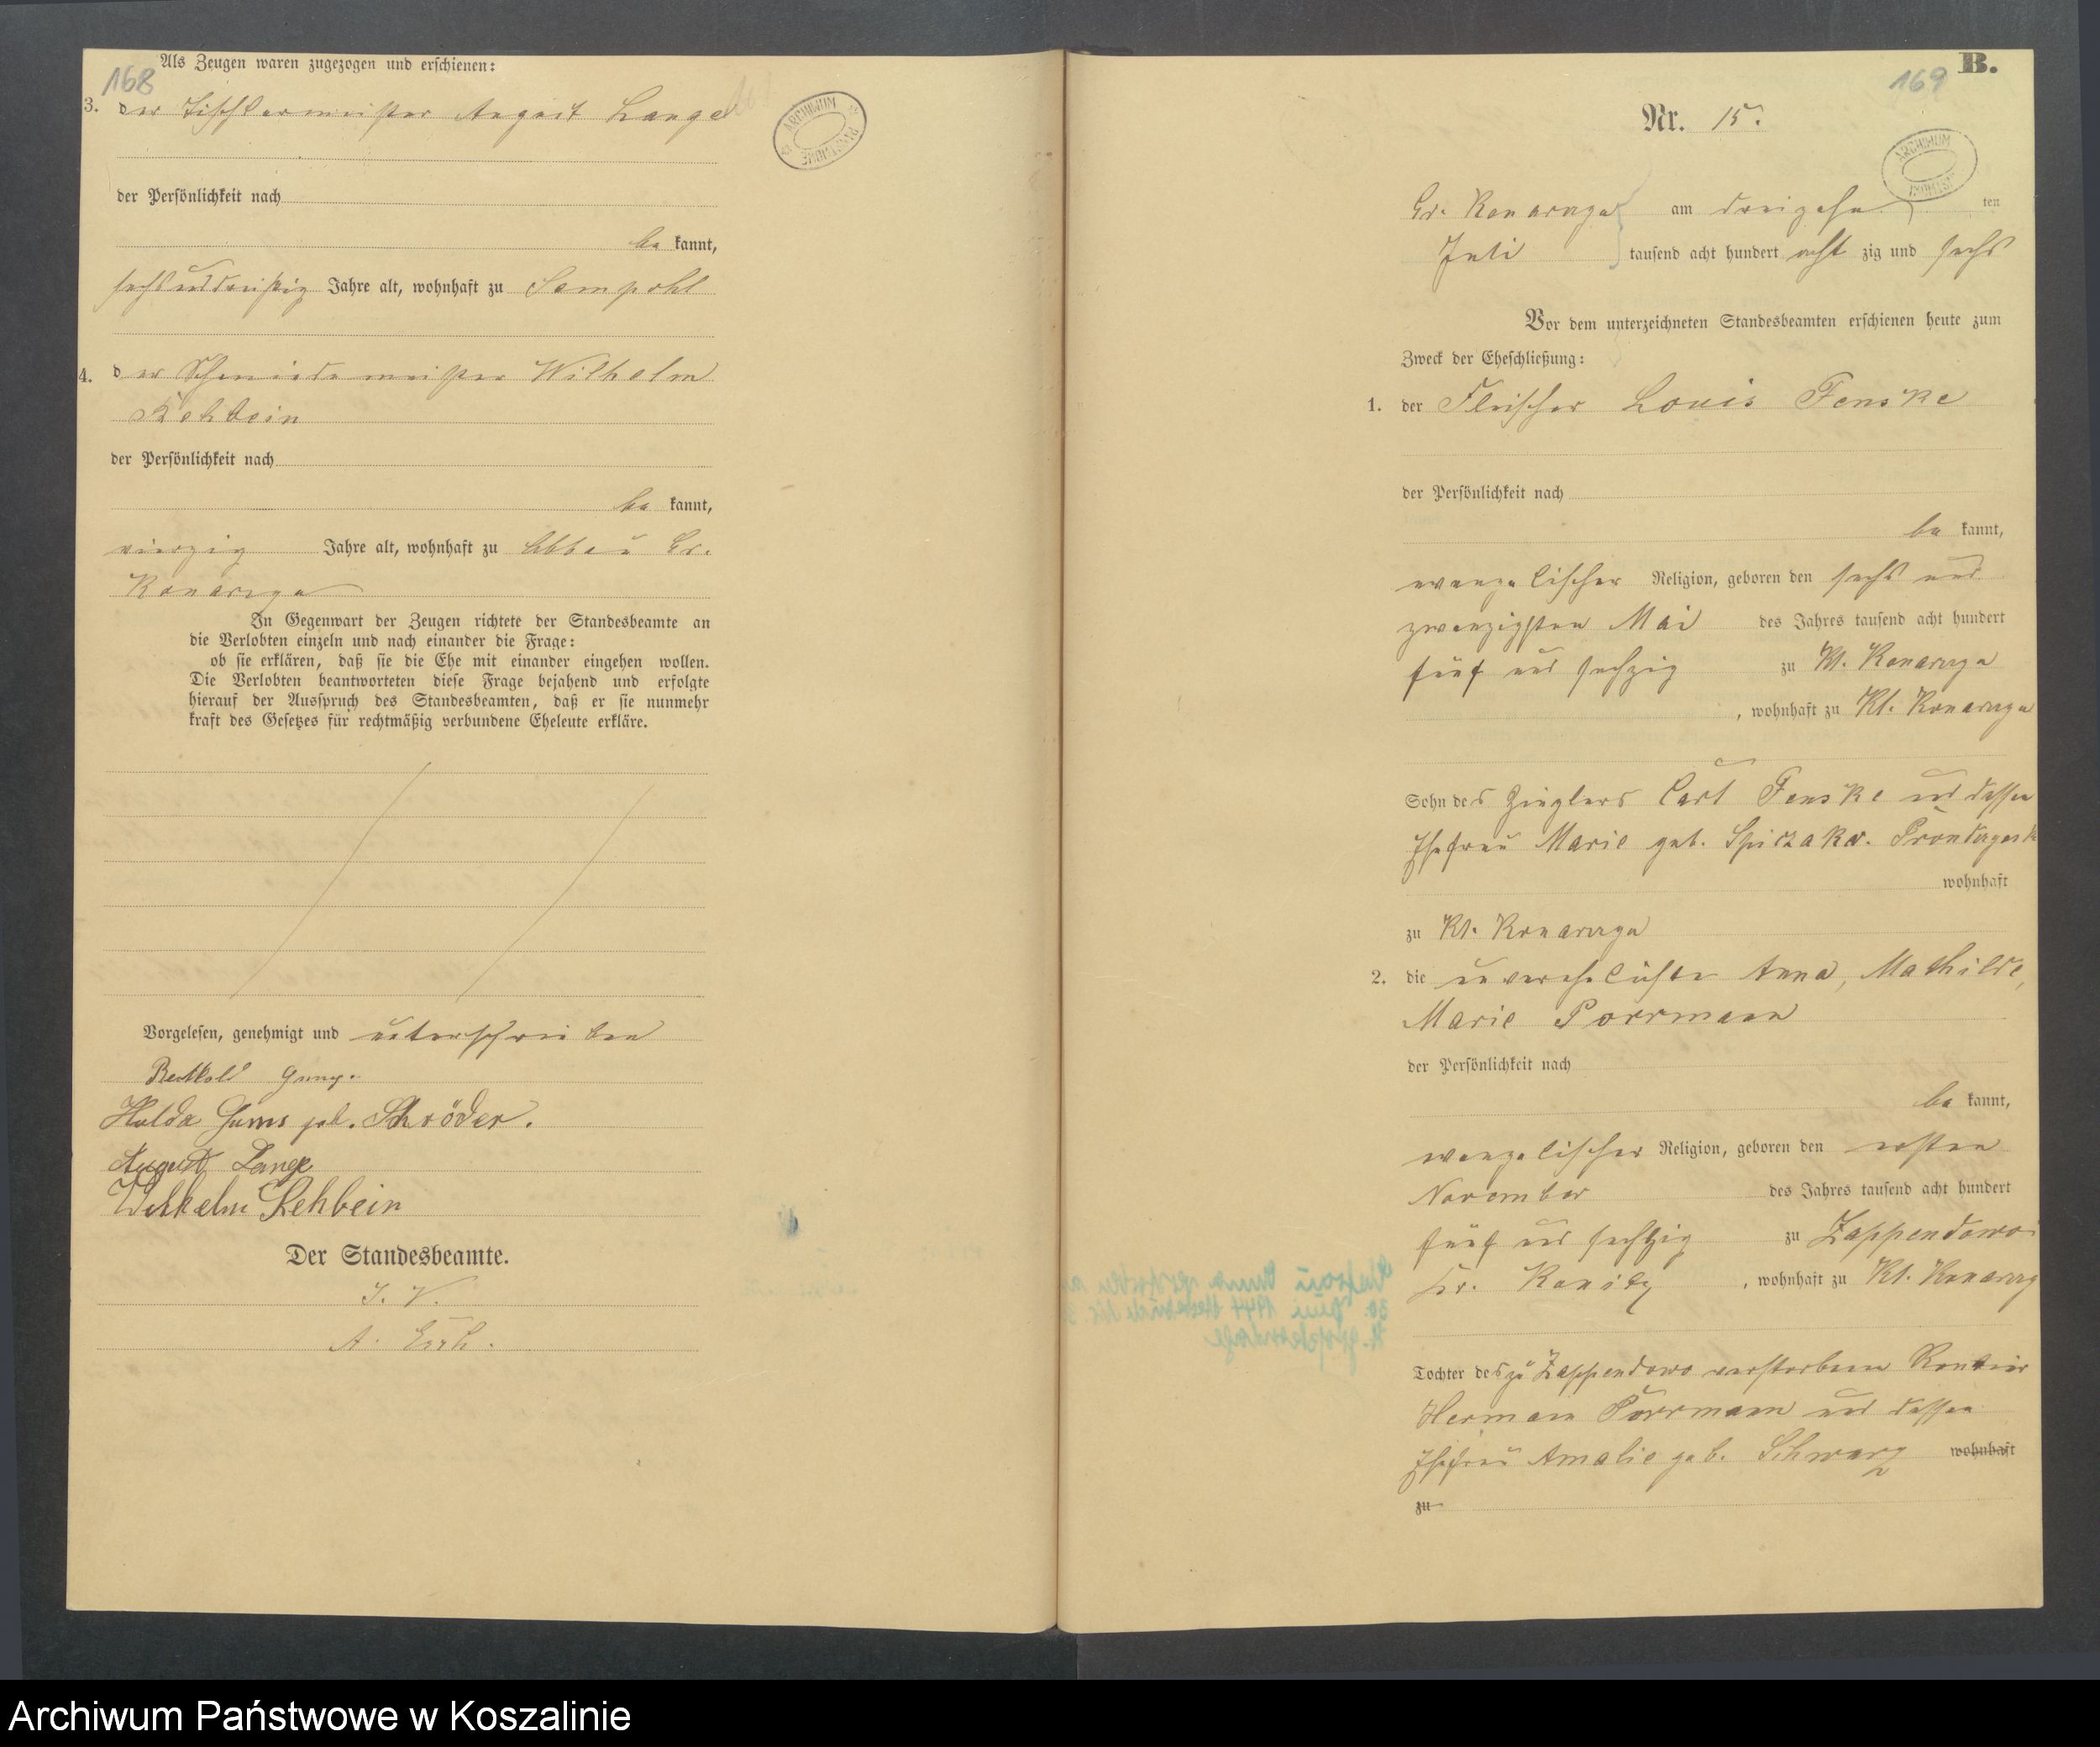 168
Als Zeugen waren zugezogen und erschienen:
3. der Tischlermeister August Lange
der Persönlichkeit nach
be kannt,
sechsunddreißig Jahre alt, wohnhaft zu Sampohl
4. der Schmiedemeister Wilhelm
Rehbein
der Persönlichkeit nach
be kannt,
vierzig Jahre alt, wohnhaft zu Abbau Gr.
Konarczyn
In Gegenwart der Zeugen richtete der Standesbeamte an
die Verlobten einzeln und nach einander die Frage:
ob sie erklären, daß sie die Ehe mit einander eingehen wollen.
Die Verlobten beantworteten diese Frage bejahend und erfolgte
hierauf der Ausspruch des Standesbeamten, daß er sie nunmehr
kraft des Gesetzes für rechtmäßig verbundene Eheleute erkläre.
Vorgelesen, genehmigt und unterschrieben
Berthold
Hulda Gums geb. Schröder.
August Lange
Wilhelm Rehbein
Der Standesbeamte.
I. V.
A.
ARCHIWUM
169 B.
Nr. 15.
ARCHIWUM
Gr. Konarczyn am dreizehn ten
Juli tausend acht hundert acht zig und sechs
Vor dem unterzeichneten Standesbeamten erschienen heute zum
Zweck der Eheschließung:
1. der Fleischer Louis Fenske
der Persönlichkeit nach
be kannt,
evangelischer Religion, geboren den sechs und
zwanzigsten Mai des Jahres tausend acht hundert
fünf und sechzig zu Kl. Konarczyn
, wohnhaft zu Kl. Konarczyn
Sohn des Zieglers Carl Fenske und dessen
Ehefrau Marie geb.
wohnhaft
zu Kl. Konarczyn
2. die unverehelichte Anna, Mathilde,
Marie Porrmann
der Persönlichkeit nach
be kannt,
evangelischer Religion, geboren den ersten
November des Jahres tausend acht hundert
fünf und sechzig zu Zappendowo
Kr. Konitz, wohnhaft zu Kl. Konarczyn
Tochter des zu Zappendowo verstorbenen Rentier
Hermann Porrmann und dessen
Ehefrau Amalie geb. Schwarz wohnhaft
zu
Archiwum Państwowe w Koszalinie